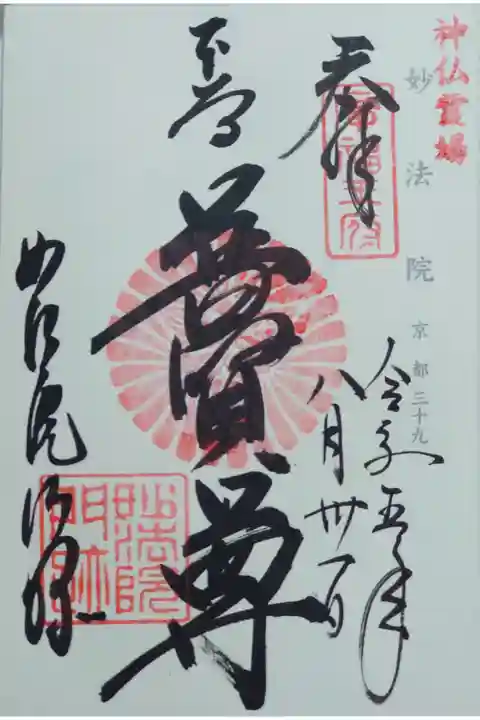 神仏霊場
妙法院 京都三十九
奉拝
令和五年
八月卅一日
普賢尊
妙法院門跡
妙法院門跡